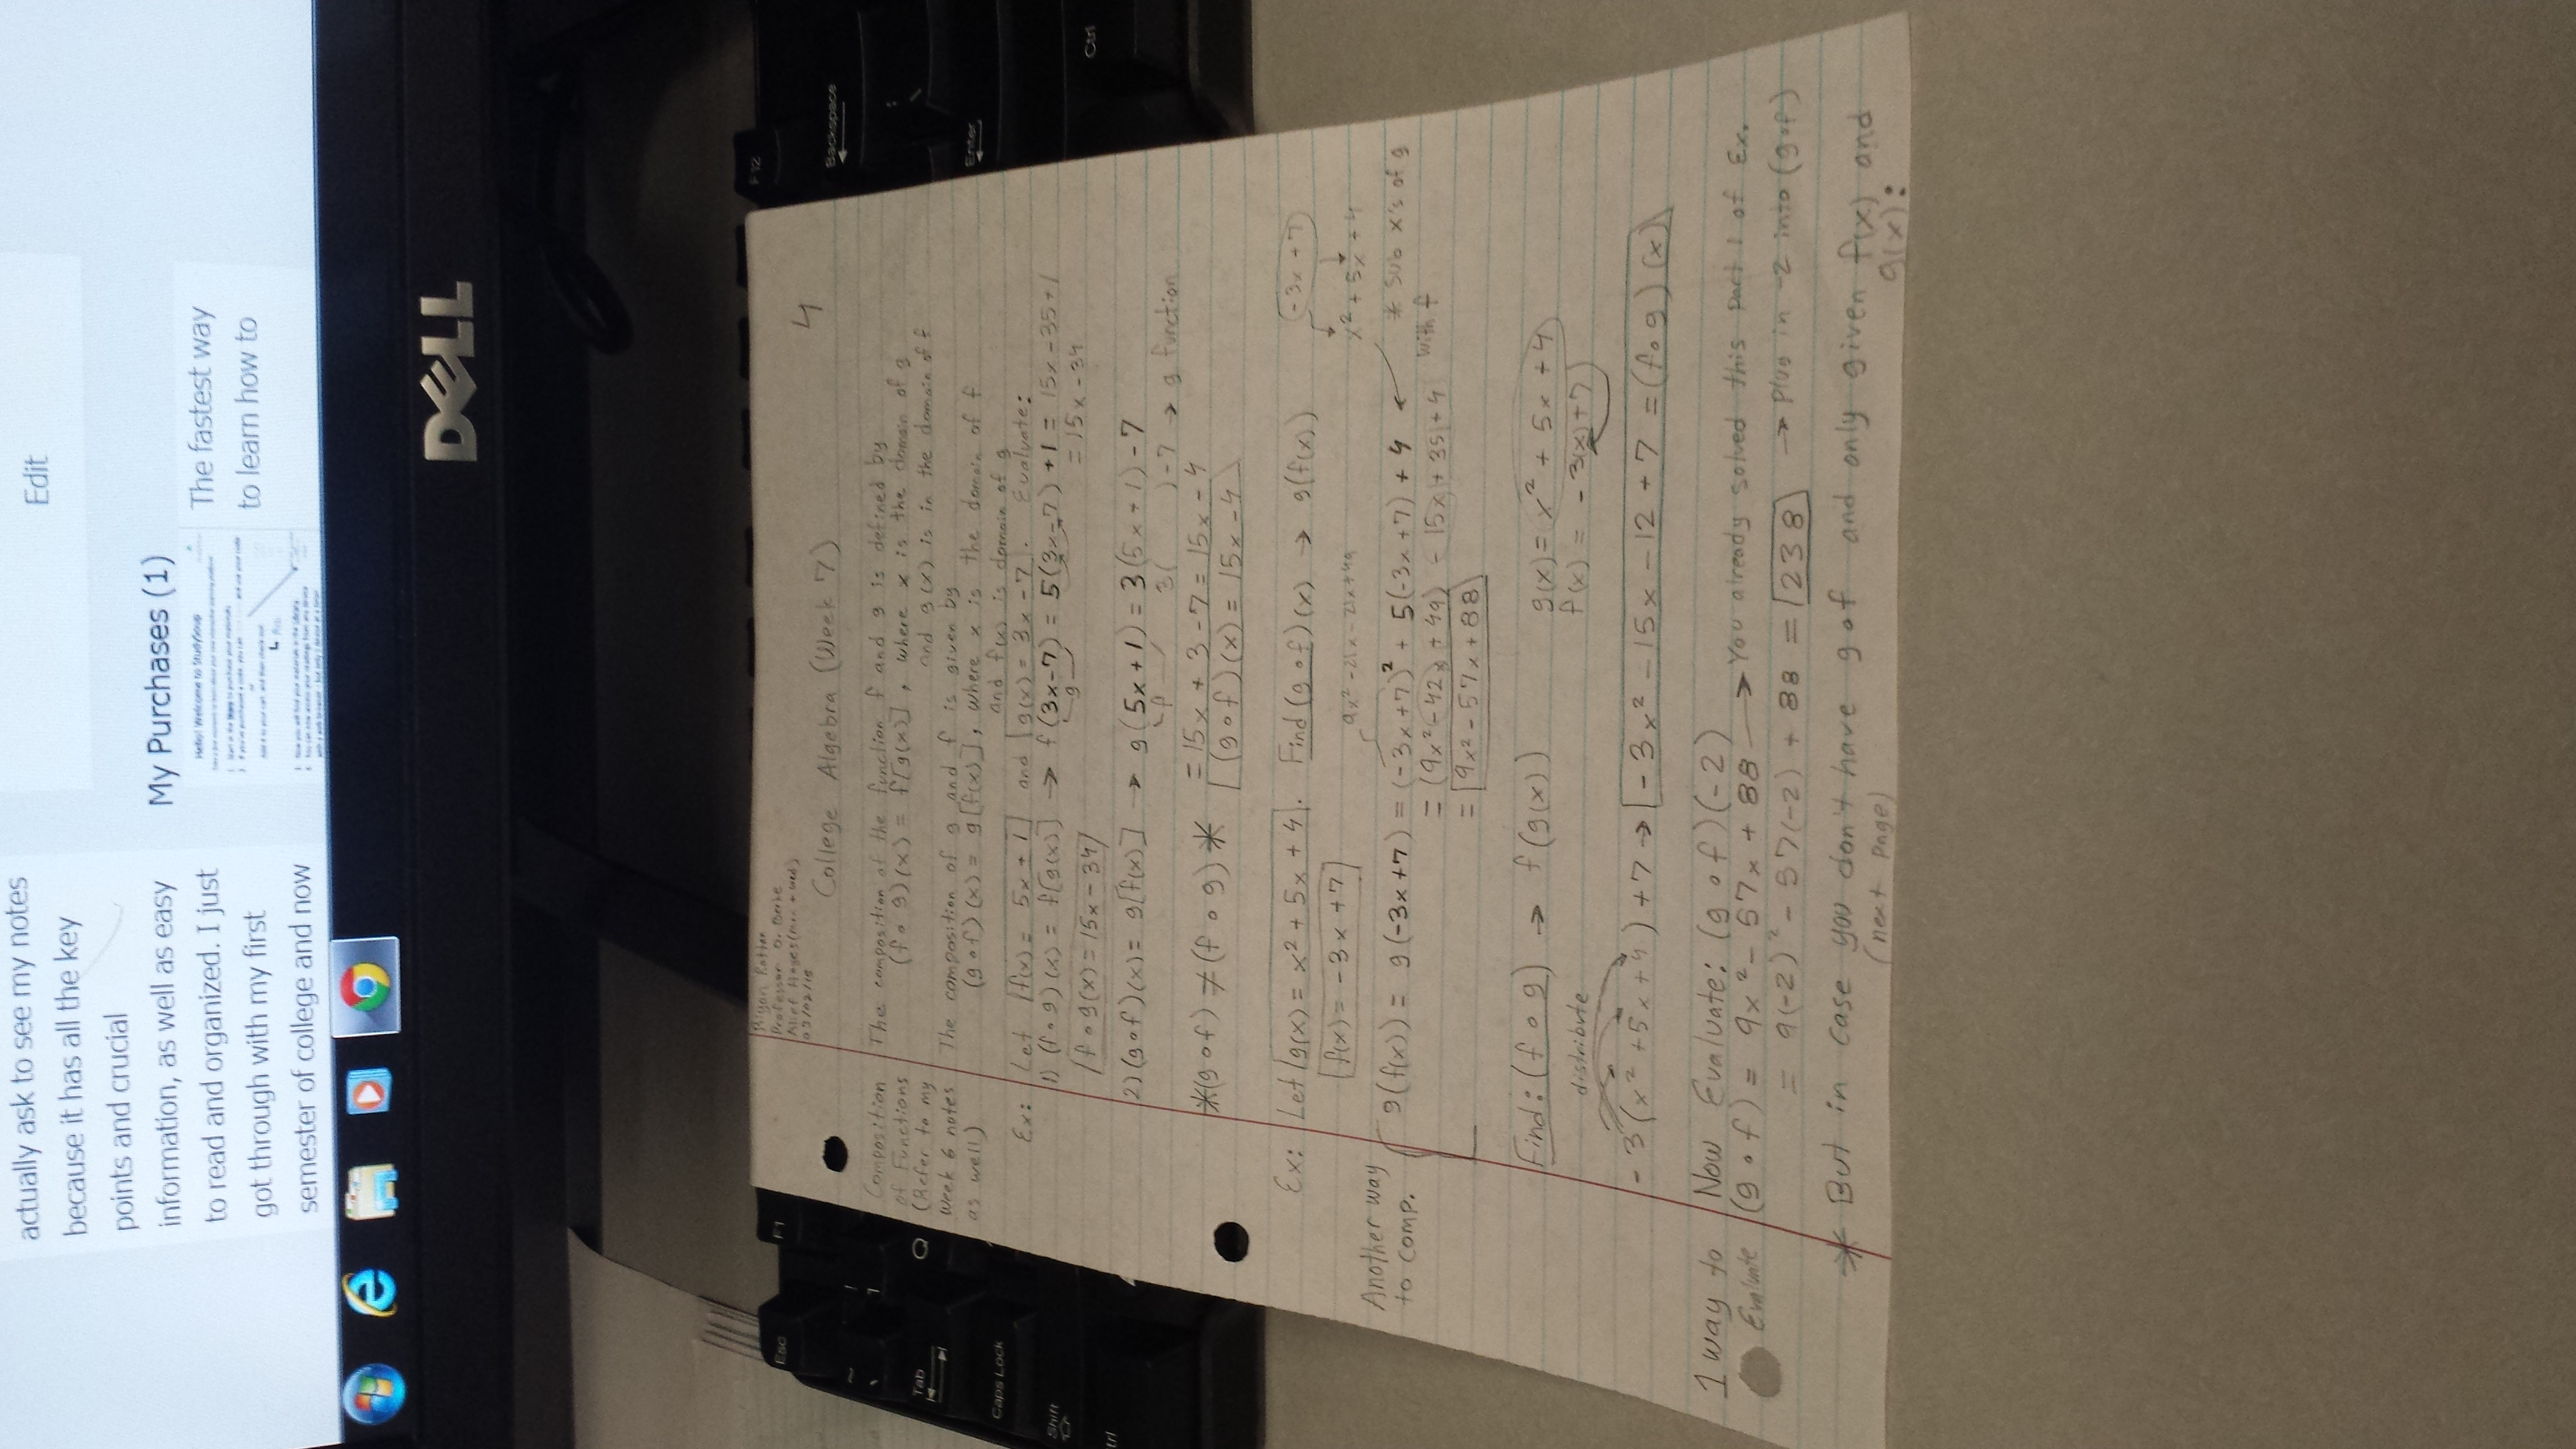 actually ask to see my notes
because it has all the key
points and crucial
information, as well as easy
to read and organized. I just
got through with my first
semester of college and now
Edit
My Purchases (1)
Hello! Welcome to StudySoup
The fastest way
to learn how to
DELL
F12
Backspace
Enter
Ctrl
F1
Esc
Q
Tab
Caps Lock
Shift
trl
4
College Algebra (Week 7)
Composition
of Functions
(Refer to my
week 6 notes
as well)
The composition of the function f and g is defined by
(f ∘ g)(x) = f[g(x)], where x is the domain of g
and g(x) is in the domain of f
The composition of g and f is given by
(g∘f)(x) = g[f(x)], where x is the domain of f
and f(x) is domain of g
Ex: Let f(x) = 5x + 1 and g(x) = 3x - 7. Evaluate:
1) (f∘g)(x) = f[g(x)] → f(3x-7) = 5(3x-7) + 1 = 15x - 35 + 1
g
= 15x - 34
f∘g(x) = 15x - 34
2) (g∘f)(x) = g[f(x)] → g(5x+1) = 3(5x+1) - 7
f 3( ) - 7 → g function
= 15x + 3 - 7 = 15x - 4
*(g∘f) ≠ (f∘g)* (g∘f)(x) = 15x - 4
Ex: Let g(x) = x² + 5x + 4. Find (g∘f)(x) → g(f(x))
-3x + 7
f(x) = -3x + 7
x² + 5x + 4
9x² - 21x - 21x + 49
Another way
to comp.
g(f(x)) = g(-3x+7) = (-3x+7)² + 5(-3x+7) + 4
* Sub x's of g
with f
= (9x² - 42x + 49) - 15x + 35 + 4
= 9x² - 57x + 88
Find: (f∘g) → f(g(x))
g(x) = x² + 5x + 4
f(x) = -3(x) + 7
distribute
-3(x² + 5x + 4) + 7 → -3x² - 15x - 12 + 7 = (f∘g)(x)
1 way to
Evaluate
Now Evaluate: (g∘f)(-2)
(g∘f) = 9x² - 57x + 88 → You already solved this part 1 of Ex.
= 9(-2)² - 57(-2) + 88 = 238 → Plug in -2 into (g∘f)
* But in case you don't have g∘f and only given f(x) and
g(x):
(next page)